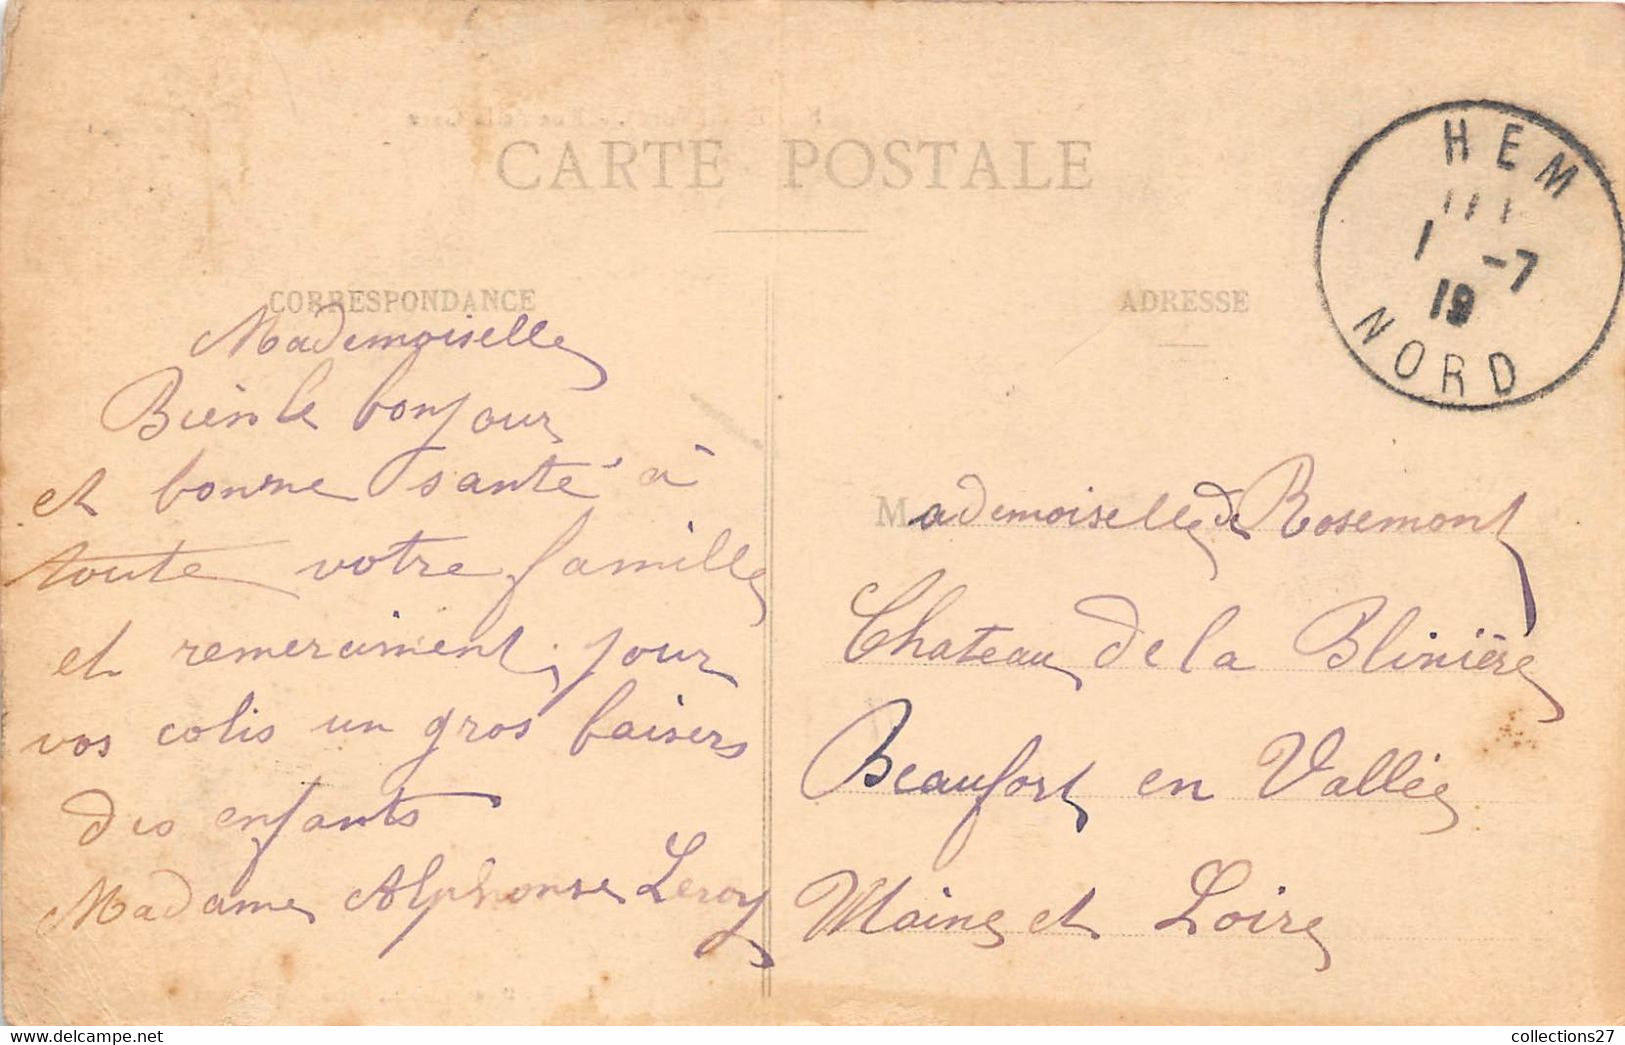 CARTE POSTALE
CORRESPONDANCE
Mademoiselle
Bien le bonjour
et bonne santé à
toute votre famille
et remerciment pour
vos colis un gros baisers
des enfants
Madame Alphonse Leroy
ADRESSE
HEM
1 -7
19
NORD
Mademoiselle de Rosemont
Chateau de la Blinière
Beaufort en Vallée
Maine et Loire
collections27